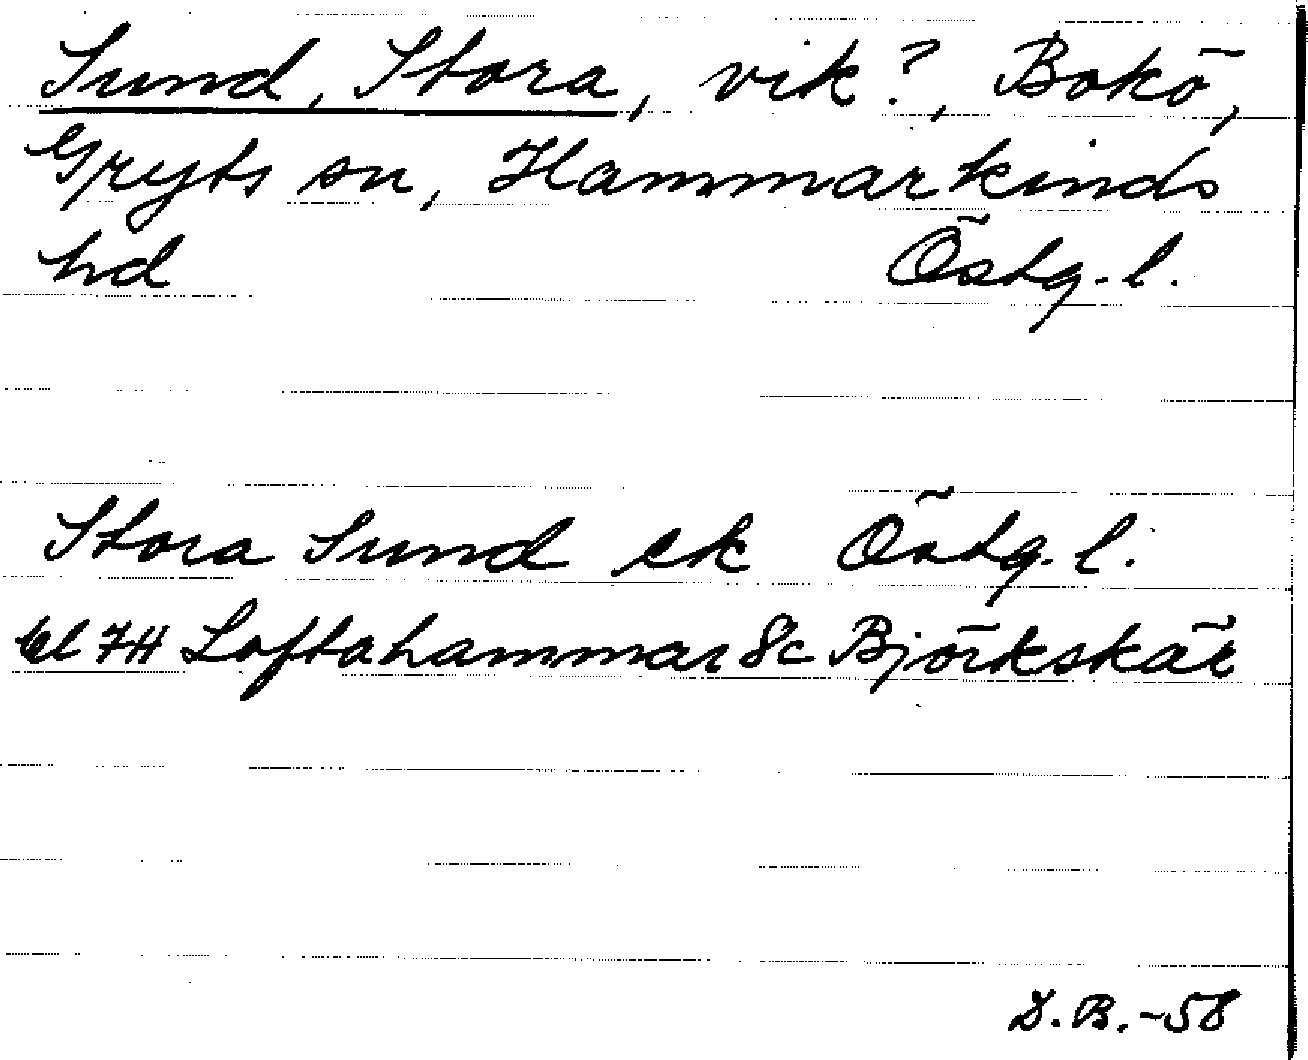 Sund, Stora, vik?, Bokö,
Gryts sn, Hammarkinds
hd Östg. l.
Stora Sund ek Östg. l.
bl 7H Loftahammar 8c Björkskär
D.B.-58